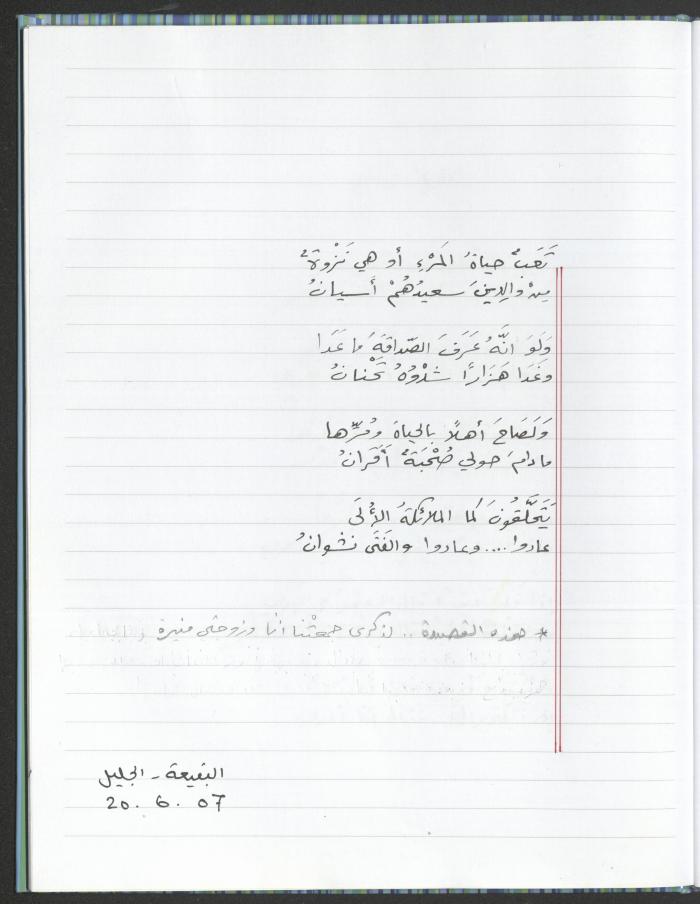 تَعَبٌ حياةُ المَرْءِ أو هي نَزْوةٌ
مِنْ والِدِينَ سعيدُهُمْ أسيانُ
وَلَوَ انَّهُ عَرَفَ الصّداقةَ ما عَدَا
وغَدَا هَزَارًا شدْوُهُ تَحْنانُ
وَلَصَاحَ أهلًا بالحياة ومُرِّها
مادامَ حولي صُحْبَةٌ أقرانُ
يَتَحَلَّقُونَ كما الملائكةُ الأُلَى
عادوا .... وعادوا والفَتَى نشوانُ
* هذه القصيدة .. لذكرى جمعتْنا أنا وزوجتي منيرة
البقيعة - الجليل
20. 6. 07